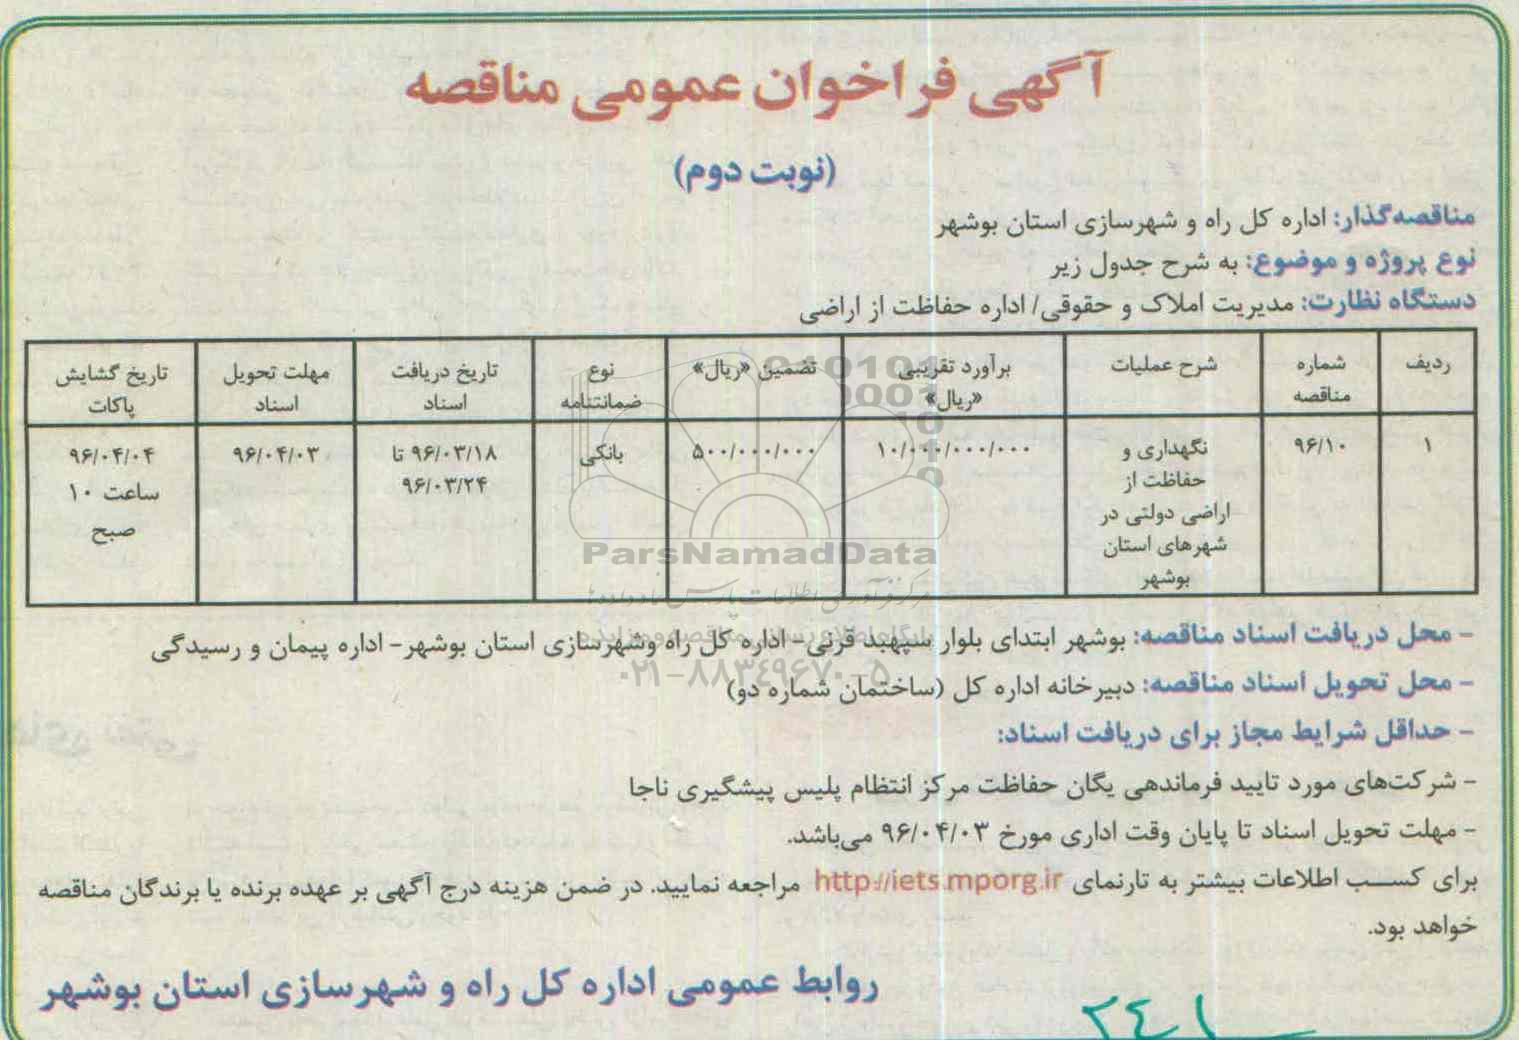 آگهی فراخوان عمومی مناقصه
(نوبت دوم)
مناقصه‌گذار: اداره کل راه و شهرسازی استان بوشهر
نوع پروژه و موضوع: به شرح جدول زیر
دستگاه نظارت: مدیریت املاک و حقوقی/ اداره حفاظت از اراضی
ردیف
شماره مناقصه
شرح عملیات
برآورد تقریبی «ریال»
تضمین «ریال»
نوع ضمانتنامه
تاریخ دریافت اسناد
مهلت تحویل اسناد
تاریخ گشایش پاکات
۱
۹۶/۱۰
نگهداری و
حفاظت از
اراضی دولتی در
شهرهای استان
بوشهر
۱۰/۰۰۰/۰۰۰/۰۰۰
۵۰۰/۰۰۰/۰۰۰
بانکی
۹۶/۰۳/۱۸ تا
۹۶/۰۳/۲۴
۹۶/۰۴/۰۳
۹۶/۰۴/۰۴
ساعت ۱۰
صبح
ParsNamadData
- محل دریافت اسناد مناقصه: بوشهر ابتدای بلوار سپهبد قرنی- اداره کل راه وشهرسازی استان بوشهر- اداره پیمان و رسیدگی
۰۲۱-۸۸۳۴۹۶۷۰-۵
- محل تحویل اسناد مناقصه: دبیرخانه اداره کل (ساختمان شماره دو)
- حداقل شرایط مجاز برای دریافت اسناد:
- شرکت‌های مورد تایید فرماندهی یگان حفاظت مرکز انتظام پلیس پیشگیری ناجا
- مهلت تحویل اسناد تا پایان وقت اداری مورخ ۹۶/۰۴/۰۳ می‌باشد.
برای کسب اطلاعات بیشتر به تارنمای http://iets.mporg.ir مراجعه نمایید. در ضمن هزینه درج آگهی بر عهده برنده یا برندگان مناقصه
خواهد بود.
روابط عمومی اداره کل راه و شهرسازی استان بوشهر